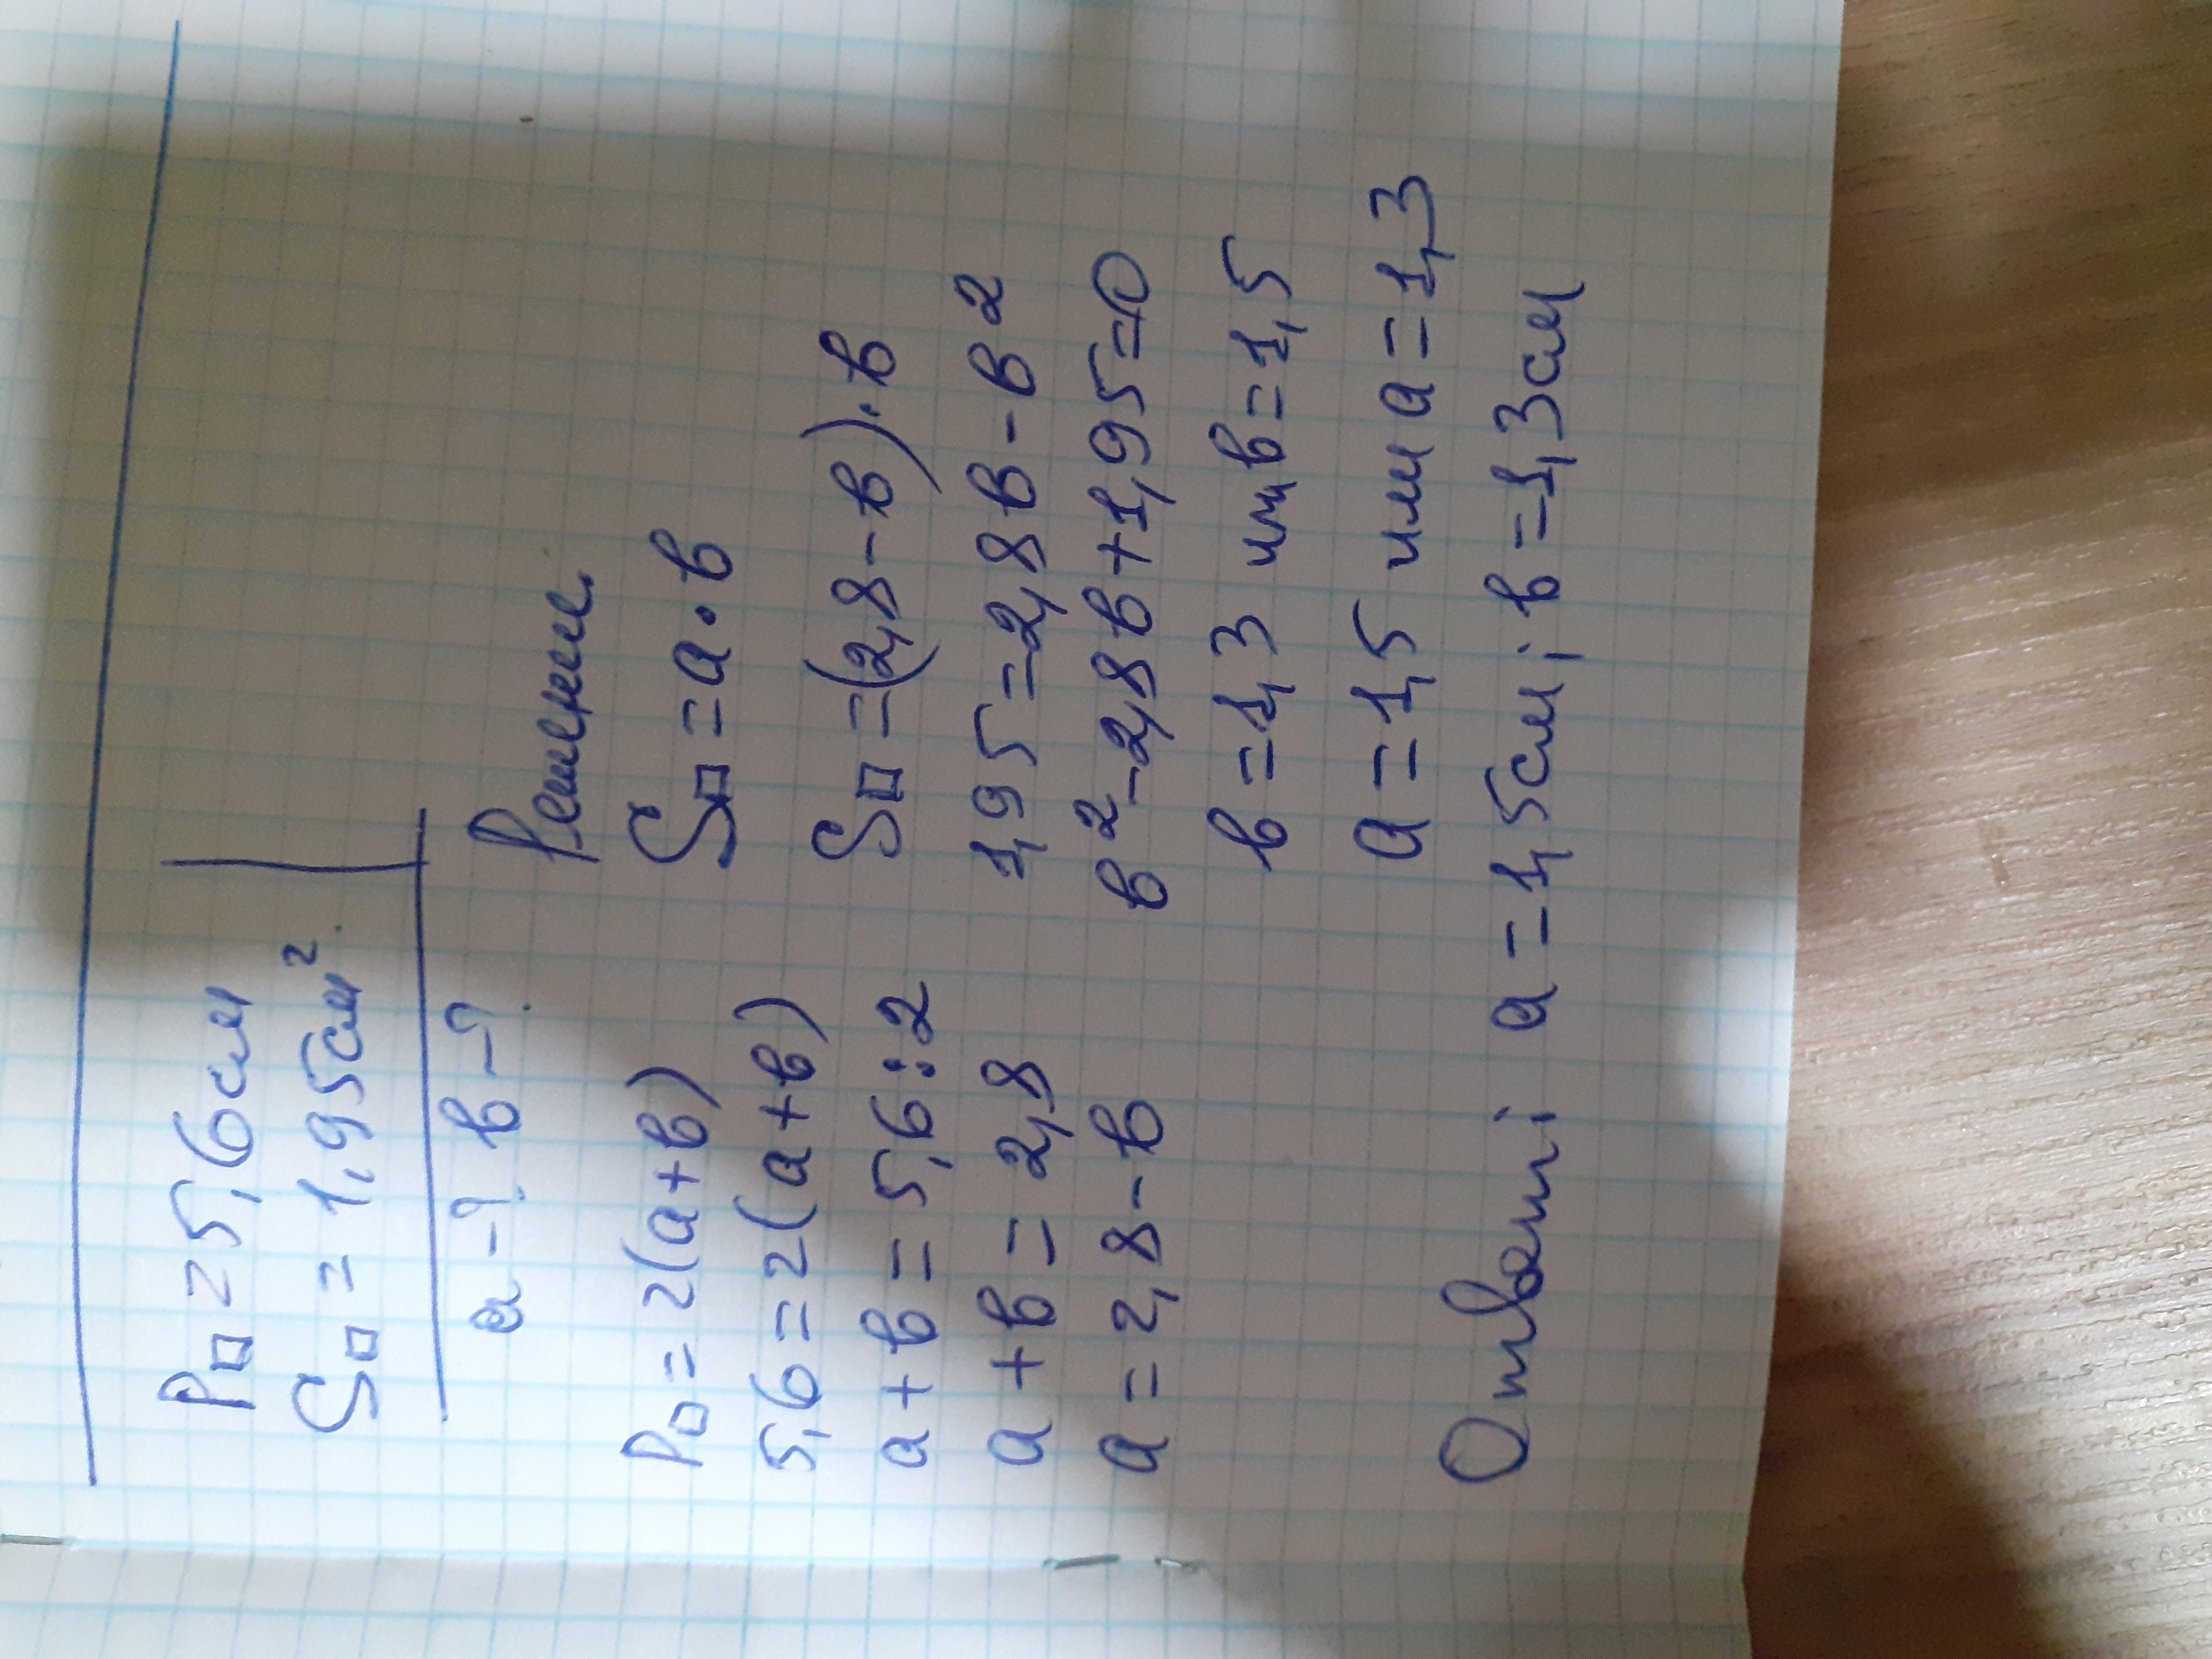 P□ = 5,6 см
S□ = 1,95 см²
a - ? в - ?
Решение
P□ = 2(a+в)
5,6 = 2(a+в)
a+в = 5,6:2
a+в = 2,8
a = 2,8-в
S□ = a·в
S□ = (2,8-в)·в
1,95 = 2,8в-в²
в²-2,8в+1,95=0
в=1,3 или в=1,5
a=1,5 или a=1,3
Ответ: a=1,5см; в=1,3см